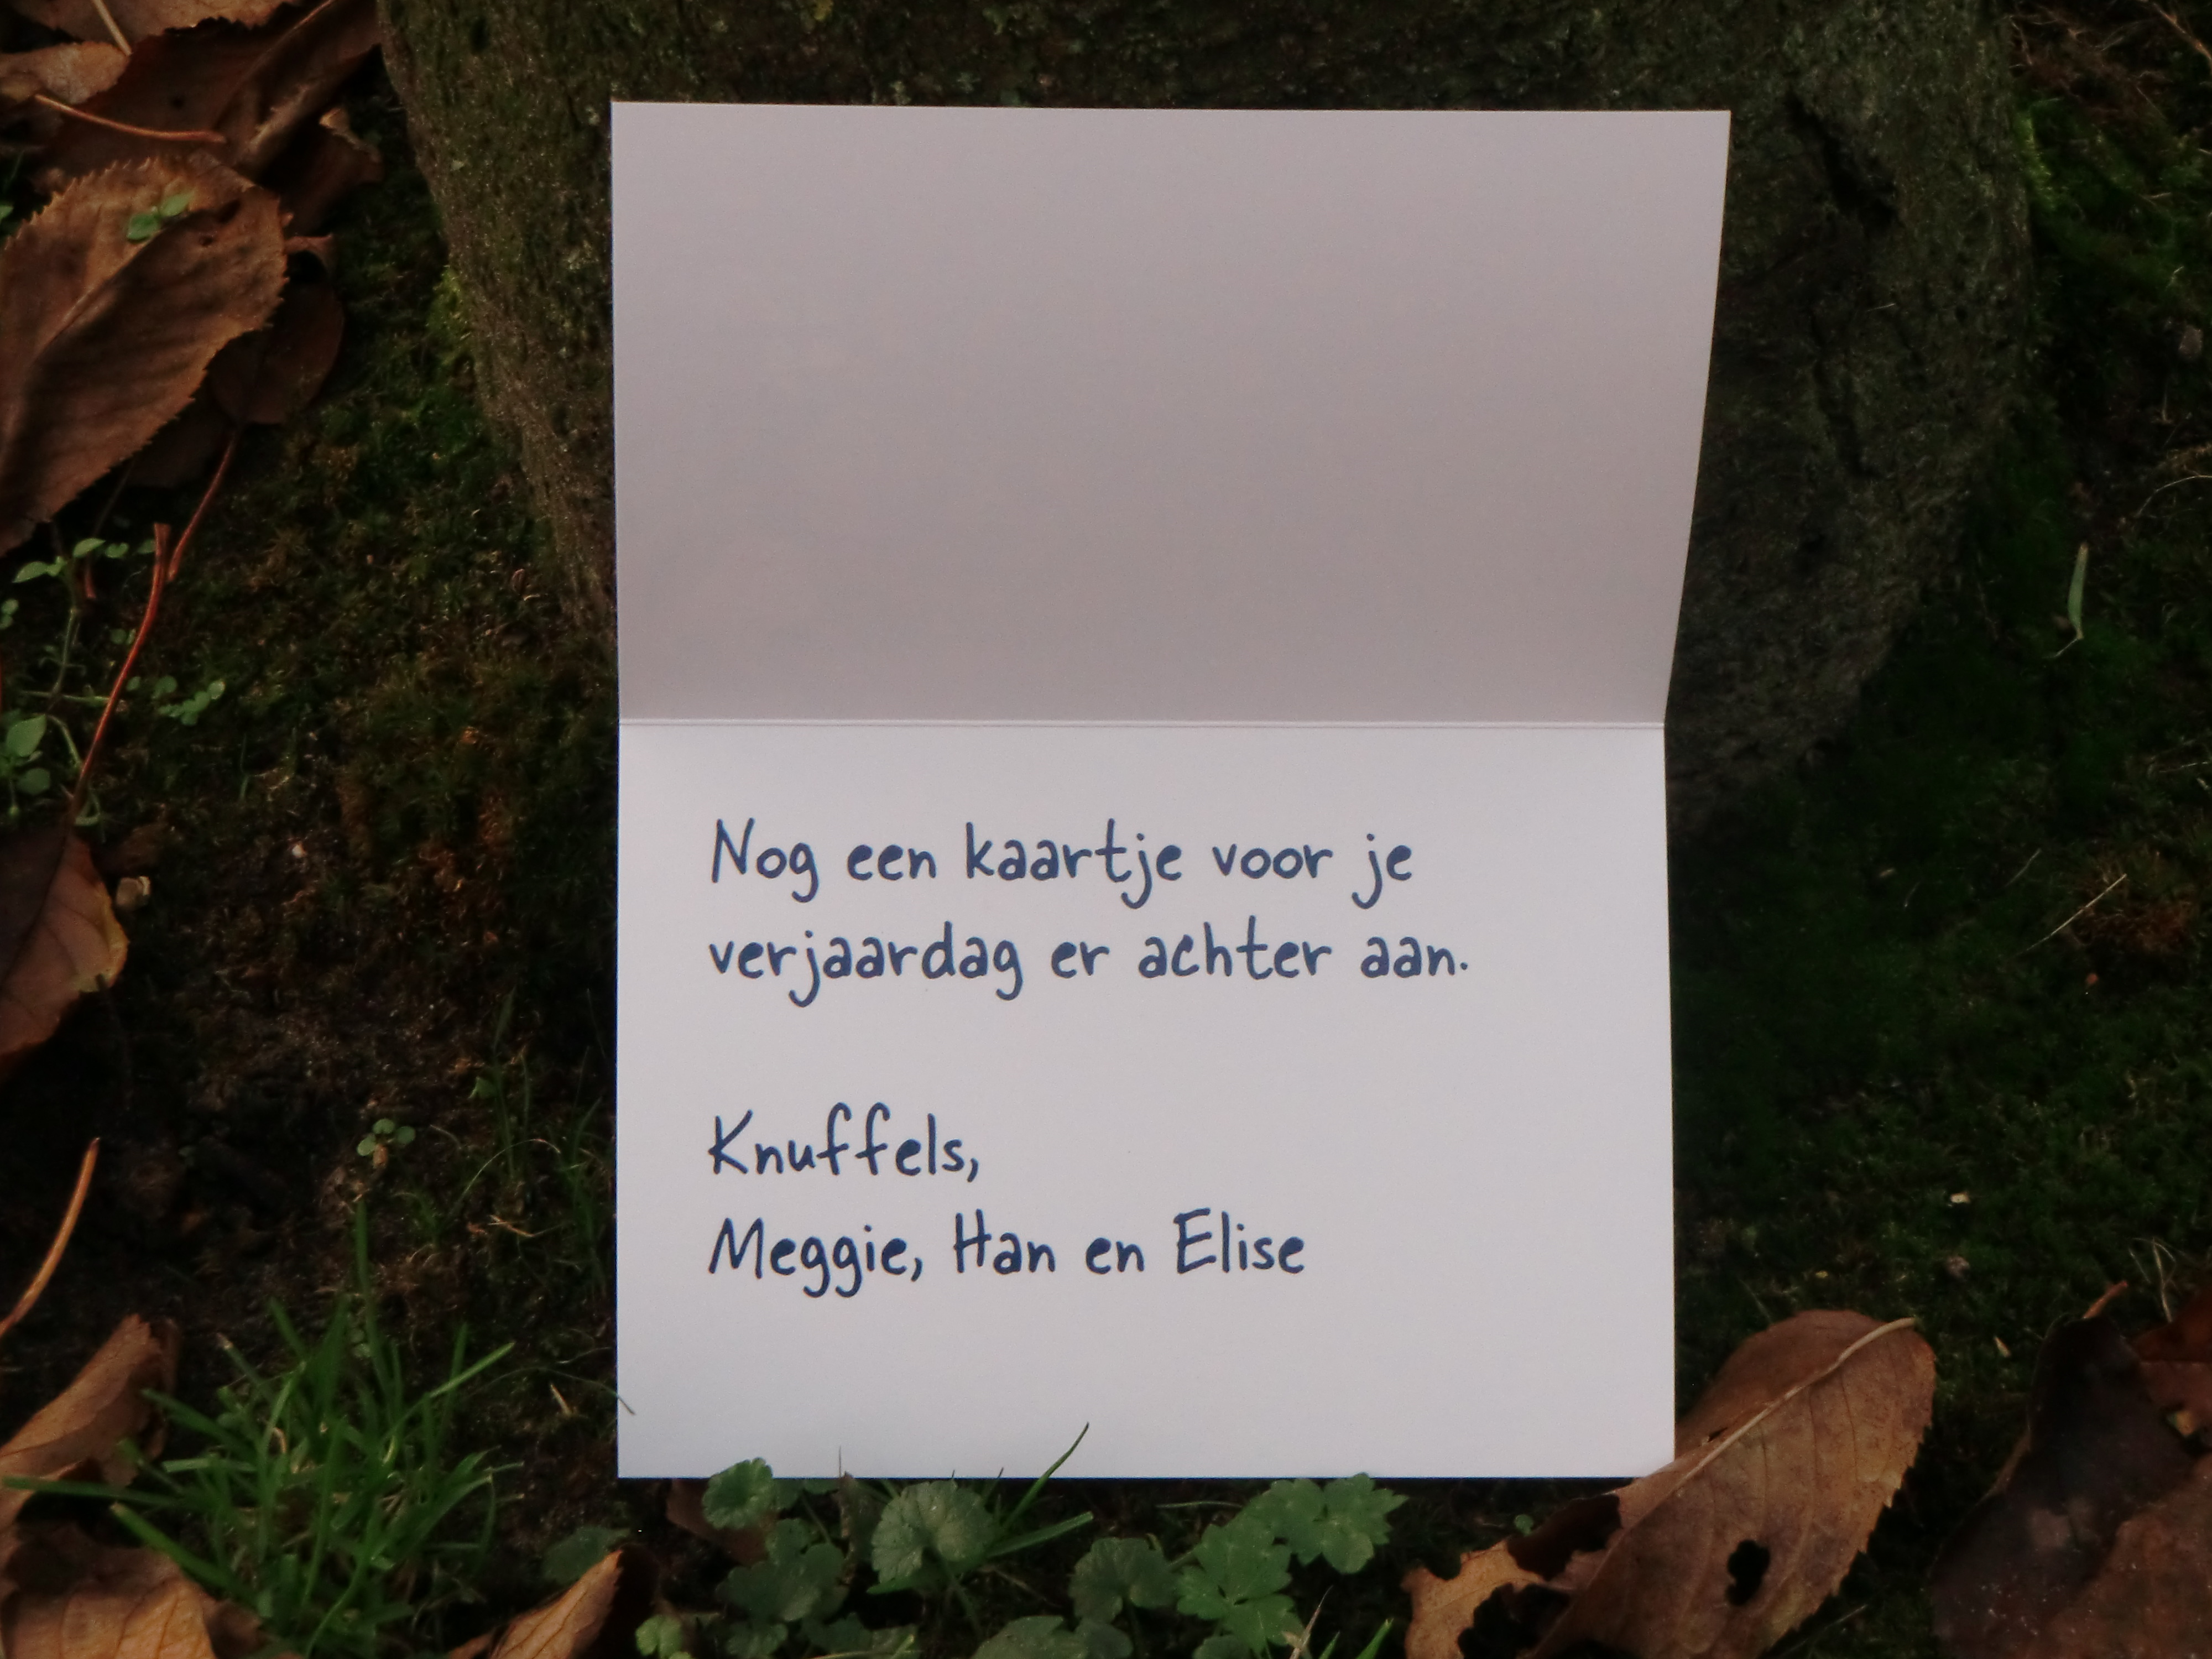 Nog een kaartje voor je
verjaardag er achter aan.
Knuffels,
Meggie, Han en Elise